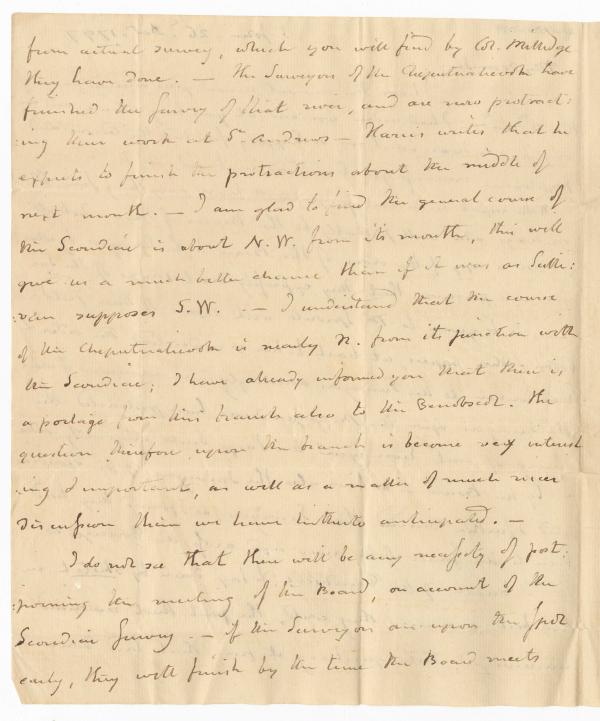 from actual survey, which you will find by Col. Milledge
they have done. — the Surveyors of the Cheputnatecook have
finished the Survey of that river, and are now protract:
:ing their work at St. Andrews — Harris writes that he
expects to finish the protractions about the middle of
next month. — I am glad to find the general course of
the Scoudiac is about N.W. from its mouth, this will
give us a much better chance than if it was as Sulli:
:van supposes S.W. — I understand that the course
of the Cheputnatecook is nearly N. from its junction with
the Scoudiac; I have already informed you that there is
a portage from this branch also to the Benobscot. the
question therefore upon the branch is become very interest
:ing & important, as well as a matter of much nicer
discussion than we have hitherto anticipated. —
I do not see that there will be any necessity of post:
:poning the meeting of the Board, on account of the
Scoudiac Survey. — if the Surveyors are upon the spot
early, they will finish by the time the Board meets